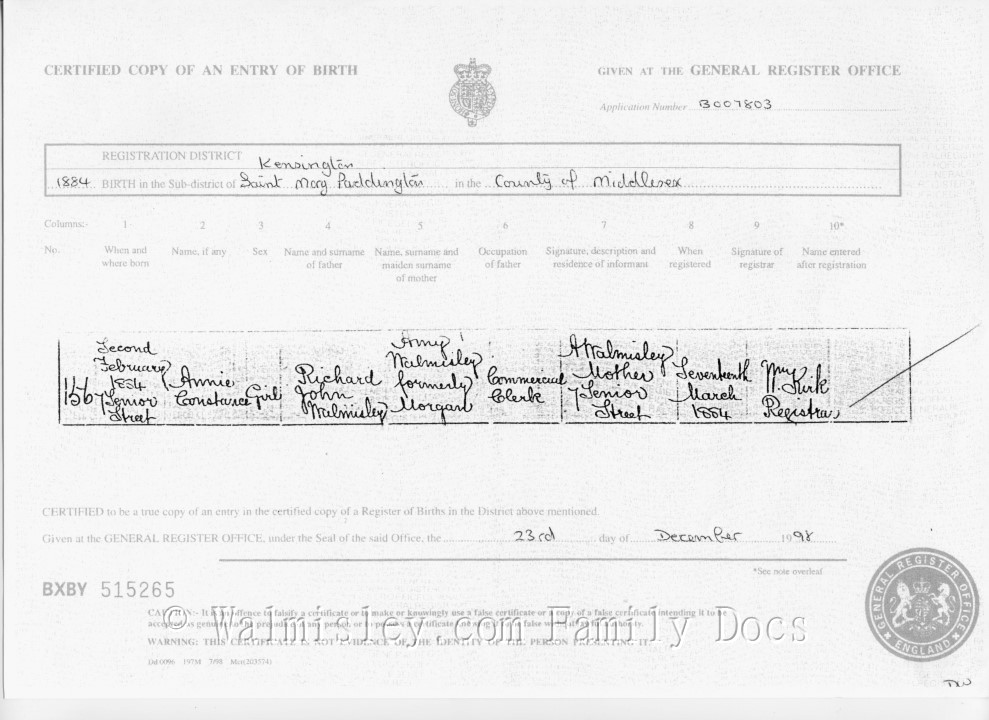 CERTIFIED COPY OF AN ENTRY OF BIRTH
GIVEN AT THE GENERAL REGISTER OFFICE
Application Number B007803
REGISTRATION DISTRICT Kensington
1884 BIRTH in the Sub-district of Saint Mary Paddington in the County of Middlesex
Columns:- 1 2 3 4 5 6 7 8 9 10*
No. When and where born Name, if any Sex Name and surname of father Name, surname and maiden surname of mother Occupation of father Signature, description and residence of informant When registered Signature of registrar Name entered after registration
156
Second
February
1884
7 Senior
Street
Annie
Constance
Girl
Richard
John
Walmisley
Amy
Walmisley
formerly
Morgan
Commercial
Clerk
A Walmisley
Mother
7 Senior
Street
Seventeenth
March
1884
Kirk
Registrar
CERTIFIED to be a true copy of an entry in the certified copy of a Register of Births in the District above mentioned.
Given at the GENERAL REGISTER OFFICE, under the Seal of the said Office, the 23rd day of December 1998
*See note overleaf
BXBY 515265
CAUTION:- It is an offence to falsify a certificate or to make or knowingly use a false certificate or a copy of a false certificate intending it to be
WARNING: THIS CERTIFICATE IS NOT EVIDENCE OF THE IDENTITY OF THE PERSON PRESENTING IT.
© Walmisley.com Family Docs
GENERAL REGISTER OFFICE
ENGLAND